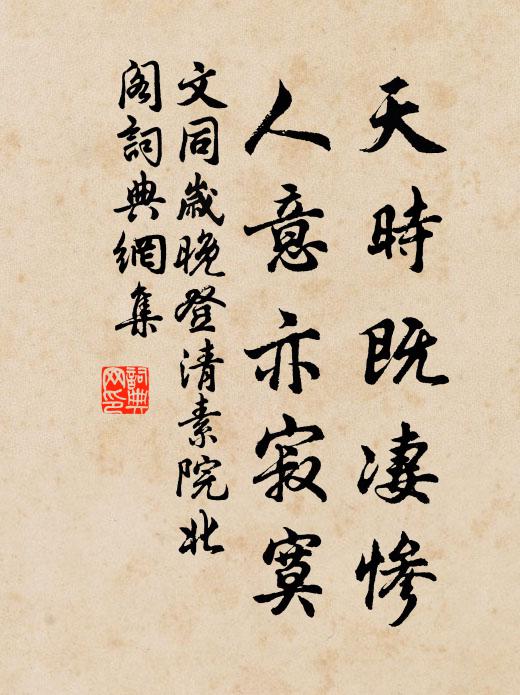 天時既凄慘
人意亦寂寞
文同歲晚登清素院北
閣詞典網集
詞典
网印